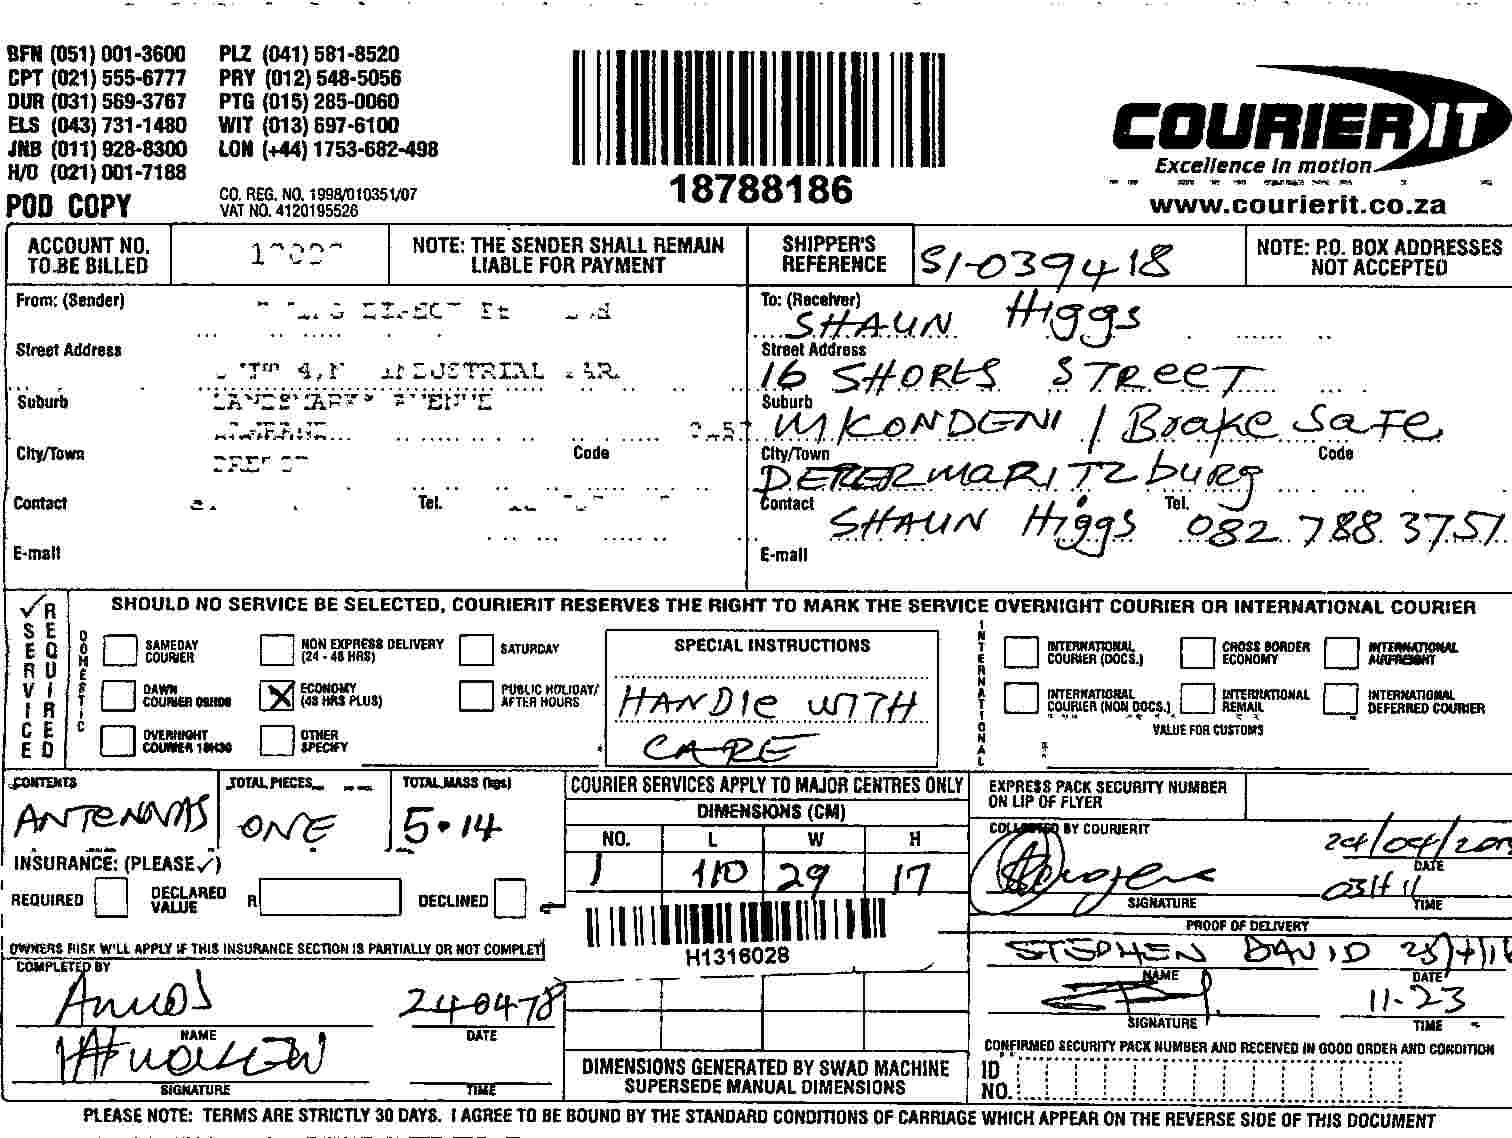 BFN (051) 001-3600 PLZ (041) 581-8520
CPT (021) 555-6777 PRY (012) 548-5056
DUR (031) 569-3767 PTG (015) 285-0060
ELS (043) 731-1480 WIT (013) 697-6100
JNB (011) 928-8300 LON (+44) 1753-682-498
H/O (021) 001-7188
POD COPY
CO. REG. NO. 1998/010351/07
VAT NO. 4120195526
18788186
COURIERIT
Excellence in motion
www.courierit.co.za
ACCOUNT NO. TO BE BILLED
NOTE: THE SENDER SHALL REMAIN LIABLE FOR PAYMENT
SHIPPER'S REFERENCE
SI-039418
NOTE: P.O. BOX ADDRESSES NOT ACCEPTED
From: (Sender)
Street Address
INDUSTRIAL
Suburb
City/Town
Code
Contact
Tel.
E-mail
To: (Receiver)
SHAUN Higgs
Street Address
16 SHORTS STREET
Suburb
MKONDENI / Brake Safe
City/Town
Code
Contact
Tel.
SHAUN Higgs 082 788 3751
E-mail
✓ SERVICE REQUIRED
SHOULD NO SERVICE BE SELECTED, COURIERIT RESERVES THE RIGHT TO MARK THE SERVICE OVERNIGHT COURIER OR INTERNATIONAL COURIER
DOMESTIC
SAMEDAY COURIER
NON EXPRESS DELIVERY (24 - 48 HRS)
SATURDAY
DAWN COURIER 09H00
X ECONOMY (48 HRS PLUS)
PUBLIC HOLIDAY/ AFTER HOURS
OVERNIGHT COURIER 10H30
OTHER SPECIFY
SPECIAL INSTRUCTIONS
HANDLE WITH
CARE
INTERNATIONAL
INTERNATIONAL COURIER (DOCS.)
CROSS BORDER ECONOMY
INTERNATIONAL AIRFREIGHT
INTERNATIONAL COURIER (NON DOCS.)
INTERNATIONAL REMAIL
INTERNATIONAL DEFERRED COURIER
VALUE FOR CUSTOMS
CONTENTS
ANTENNAS
TOTAL PIECES
ONE
TOTAL MASS (kgs)
5.14
INSURANCE: (PLEASE ✓)
REQUIRED
DECLARED VALUE
R
DECLINED
OWNERS RISK W'LL APPLY IF THIS INSURANCE SECTION IS PARTIALLY OR NOT COMPLET
COMPLETED BY
NAME
DATE
SIGNATURE
TIME
COURIER SERVICES APPLY TO MAJOR CENTRES ONLY
DIMENSIONS (CM)
NO. L W H
1 110 29 17
H1316028
DIMENSIONS GENERATED BY SWAD MACHINE SUPERSEDE MANUAL DIMENSIONS
EXPRESS PACK SECURITY NUMBER ON LIP OF FLYER
COLLECTED BY COURIERIT
DATE
SIGNATURE
TIME
PROOF OF DELIVERY
STEPHEN DAVID
NAME
DATE
11-23
SIGNATURE
TIME
CONFIRMED SECURITY PACK NUMBER AND RECEIVED IN GOOD ORDER AND CONDITION
ID NO.
PLEASE NOTE: TERMS ARE STRICTLY 30 DAYS. I AGREE TO BE BOUND BY THE STANDARD CONDITIONS OF CARRIAGE WHICH APPEAR ON THE REVERSE SIDE OF THIS DOCUMENT